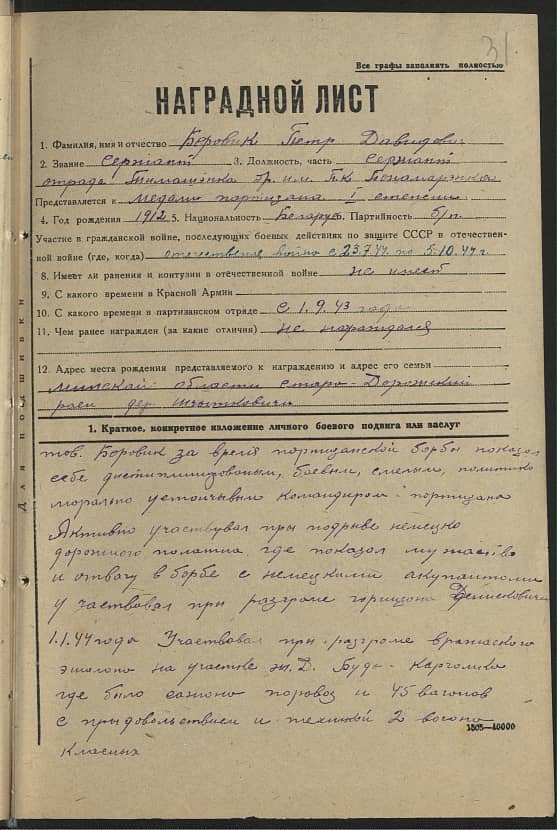 31.
Все графы заполнять полностью
НАГРАДНОЙ ЛИСТ
1. Фамилия, имя и отчество Боровик Петр Давидович
2. Звание сержант 3. Должность, часть сержант
отряда Тимошенка бр. им. П.К. Пономаренко
Представляется к медали партизана I степени
4. Год рождения 1912 5. Национальность Беларус Партийность б/п
Участие в гражданской войне, последующих боевых действиях по защите СССР в отечествен-
ной войне (где, когда) отечественая война с 23.7.41 по 5.10.44 г
8. Имеет ли ранения и контузии в отечественной войне не имеет
9. С какого времени в Красной Армии
10. С какого времени в партизанском отряде с 1.9.43 года
11. Чем ранее награжден (за какие отличия) не награждался
12. Адрес места рождения представляемого к награждению и адрес его семьи
Минской области Старо-Дорожский
раен дер.
1. Краткое, конкретное изложение личного боевого подвига или заслуг
тов. Боровик за время партизанской борбы показал
себе дистиплинированым, боевым, смелым, политико
морально устойчывым командиром-партизана
Активно участвувал пры подрыве немецко
дорожного полатна где показол мужаство
и отвагу в борбе с немецкими акупантоми
участвовал при разгроме горнизона
1.1.44 года Участвовал при розгроме вражаского
эшалона на участке ж.Д. Буда-
где было сажоно поровоз и 45 вагонов
с придовольствием и техникой 2 вогона
класных
1505—10000
Для подшивки